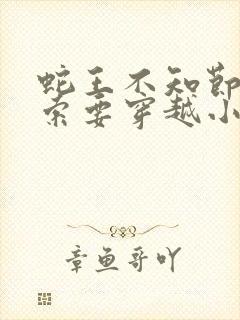 蛇王不知节
索要穿越小
章鱼哥吖